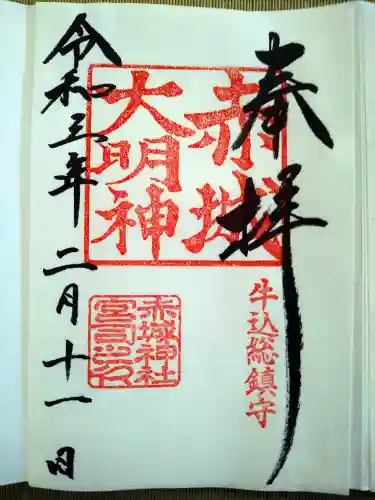 奉拝
赤城
大明神
牛込総鎮守
赤城神社
宮司之印
令和三年二月十一日